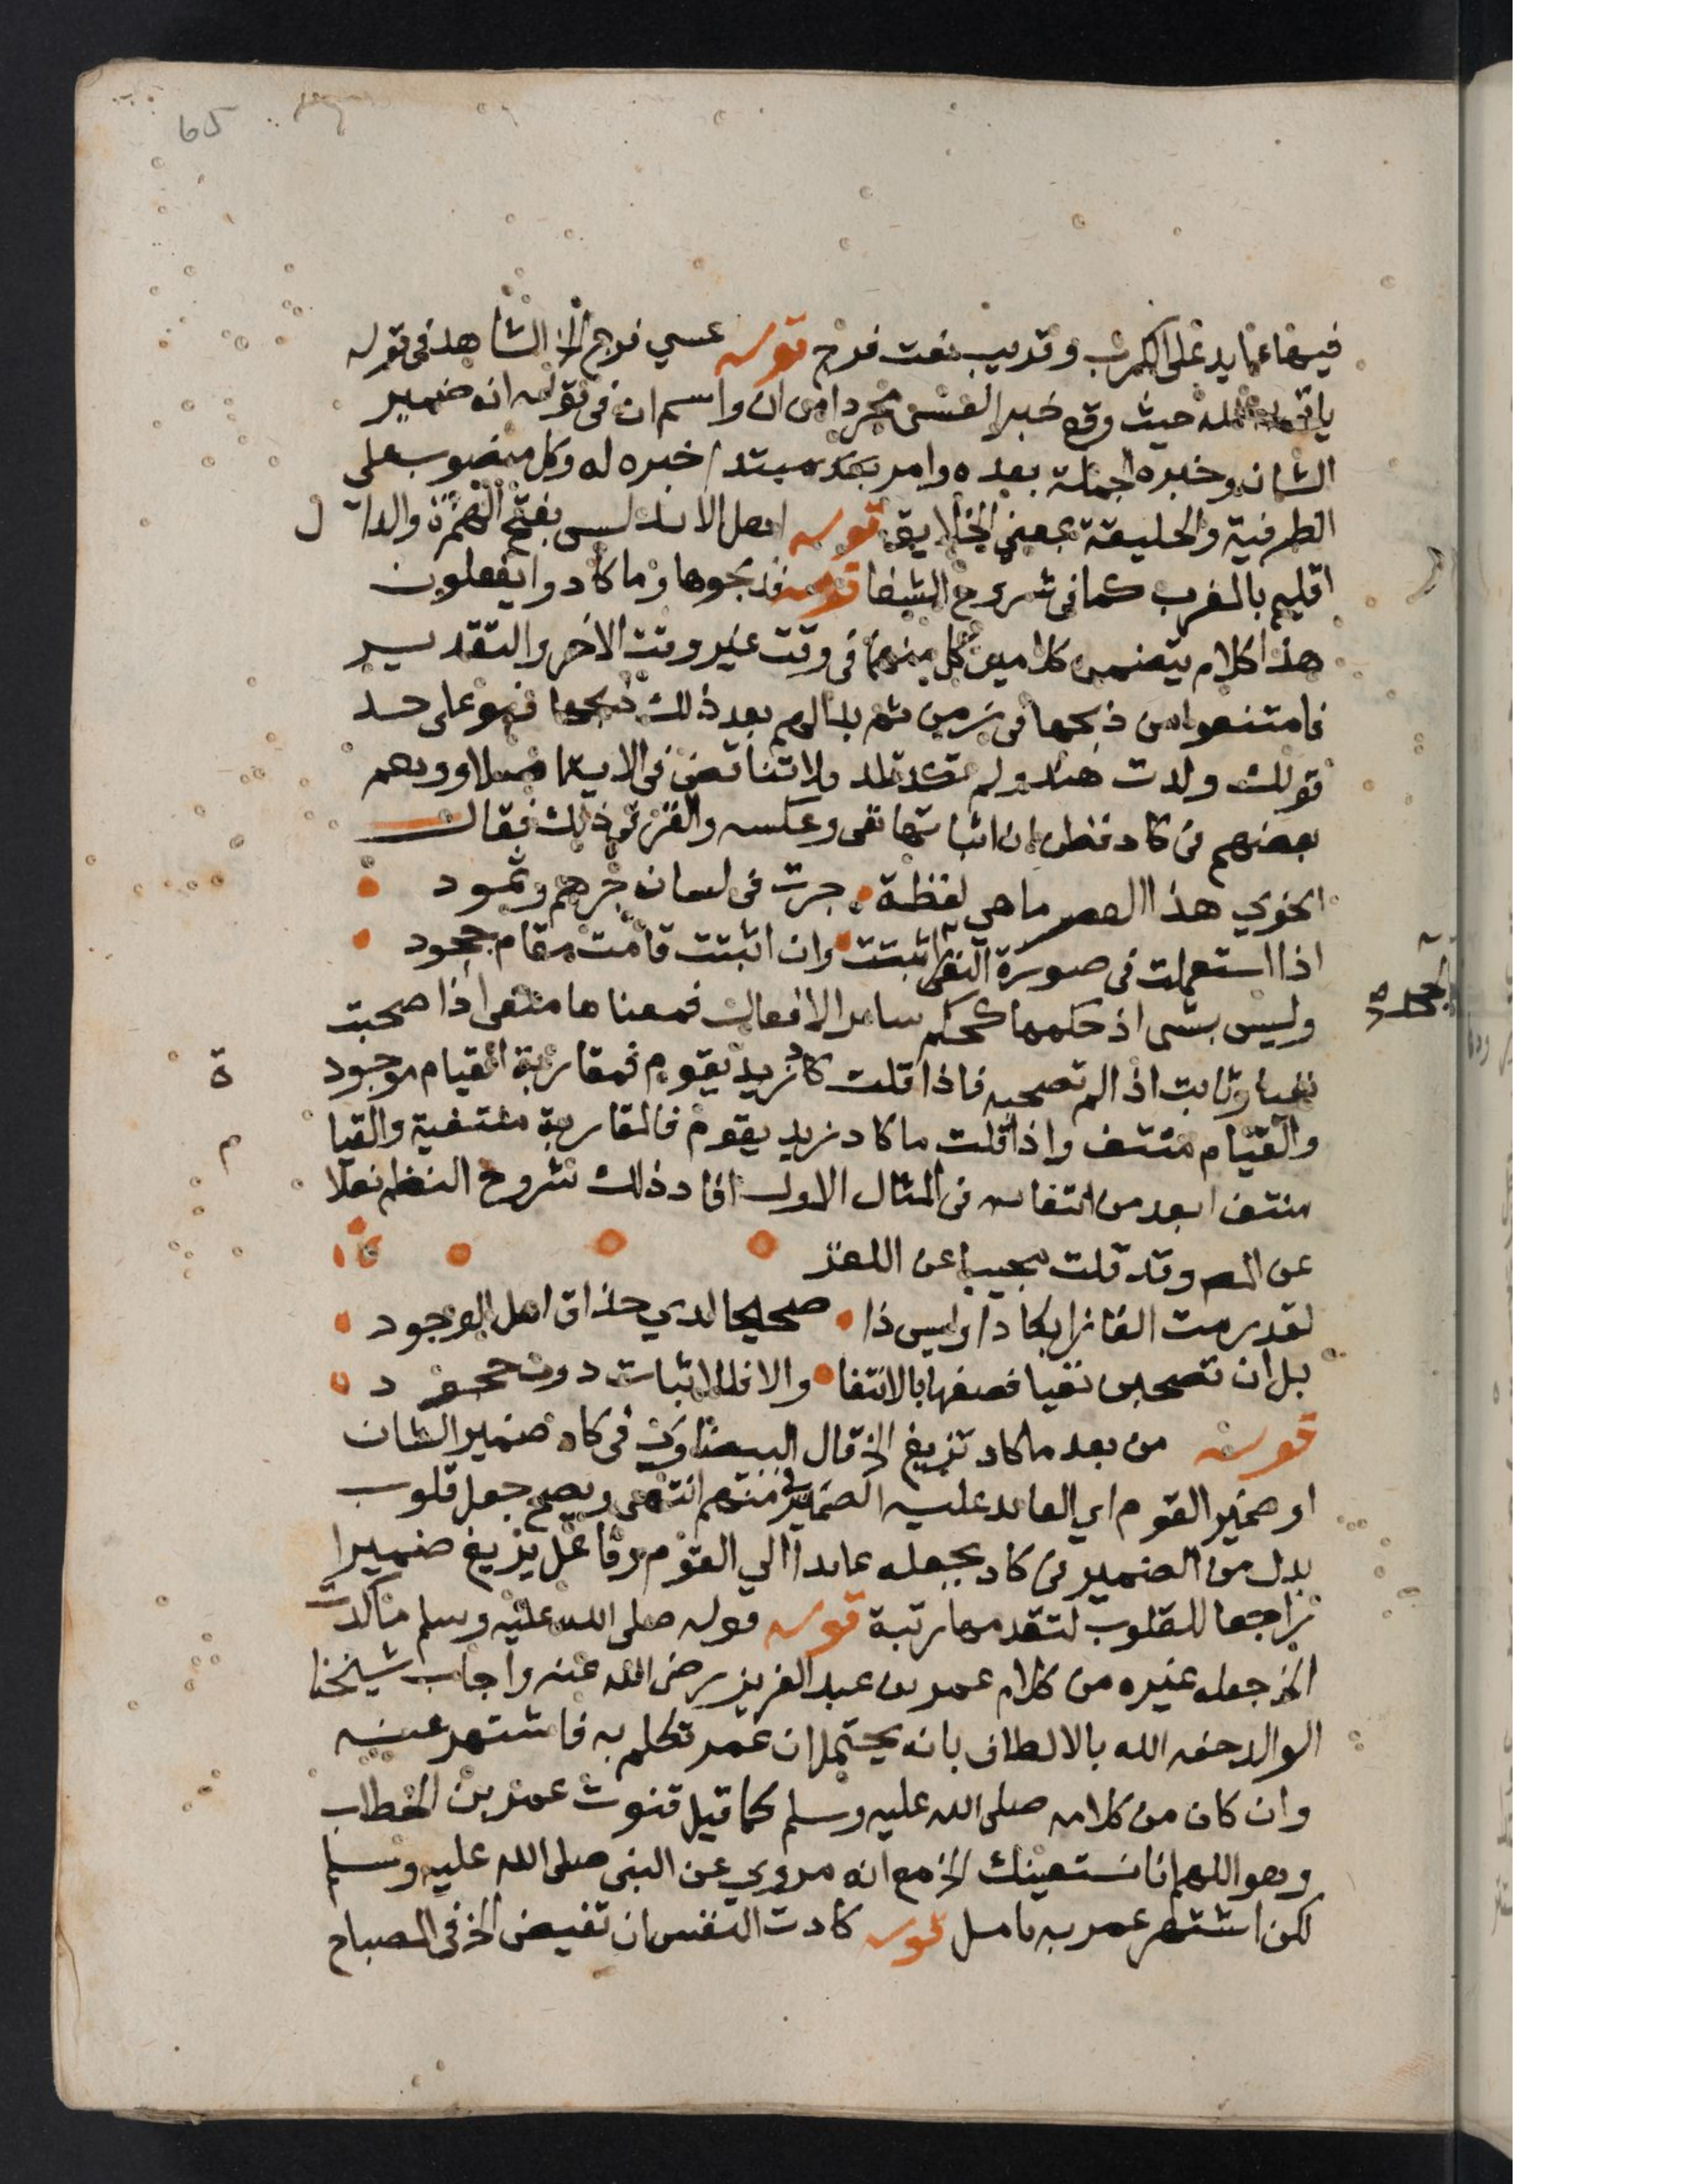 65
فيها عايد على الكرب وقريب نعت فرج قوله عسى فرج الخ الشاهد فى قوله
ياتى به الله حيث وقع خبر العسى مجردا من ان واسم ان فى قوله انه ضمير
الشان وخبره الجملة بعده وامر بعد مبتدا خبره له وكل منصوب على
الظرفية والخليقة بمعنى الخلايق قوله اهل الاندلس بفتح الهمزة والدا ل
اقليم بالمغرب كما فى شروح الشفا قوله فذبحوها وما كادوا يفعلون
هذا كلام يتضمن كلامين كل منهما فى وقت غير وقت الاخر والتقدير
فامتنعوا من ذبحها فى زمن ثم بدا لهم بعد ذلك ذبحها فهو على حد
قولك ولدت هند ولم تكد تلد ولا تناقض فى الاية اصلا ووهم
بعضهم فى كاد فظن ان اثباتها نفى وعكسه والغز فى ذلك فقال
انحوي هذا العصر ما هي لفظة جرت فى لسان جرهم وثمود
اذا استعملت فى صورة النفى اثبتت وان اثبتت قامت مقام جحود
الجحد
وليس بشى اذ حكمها كحكم سائر الافعال فمعناها منفى اذا صحبت
نفيا وثابت اذا لم تصحبه فاذا قلت كاد زيد يقوم فمقاربة القيام موجود ة
والقيام منتف واذا قلت ما كاد زيد يقوم فالمقاربة منتفية والقيا م
منتف ابعد من انتفائه فى المثال الاول افاد ذلك شروح النظم نقلا
عن المص وقد قلت مجيبا عن اللغز
لقد رمت الغازا بكاد وليس ذا صحيحا لدي حذاق اهل الوجود
بل ان تصحبن نفيا فصفها بالانتفا والا فللاثبات دون جحود
قوله من بعد ما كاد تزيغ الخ قال البيضاوى فى كاد ضمير الشان
او ضمير القوم اي العائد عليه الضمير فى منهم انتهى ويصح جعل قلوب
بدل من الضمير فى كاد بجعله عائدا الي القوم وفاعل يزيغ ضميرا
راجعا للقلوب لتقدمها رتبة قوله قوله صلى الله عليه وسلم ما كدت
الخ جعله غيره من كلام عمر بن عبد العزيز رضى الله عنه واجاب شيخنا
الوالد حفه الله بالالطاف بانه يحتمل ان عمر تكلم به فاشتهر عنه
وان كان من كلامه صلى الله عليه وسلم كما قيل قنوت عمر بن الخطاب
وهو اللهم انا نستعينك الخ مع انه مروي عن النبى صلى الله عليه وسلم
لكن اشتهر عمر به تامل قوله كادت النفس ان تفيض الخ فى المصباح